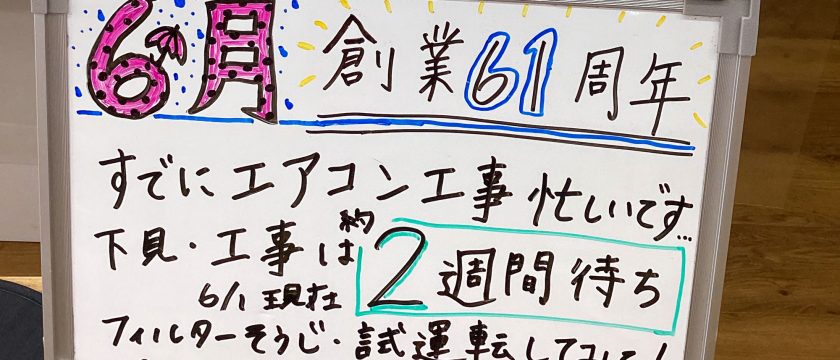 6月 創業61周年
すでにエアコン工事 忙しいです…
下見・工事は約2週間待ち
6/1 現在
フィルターそうじ・試運転して